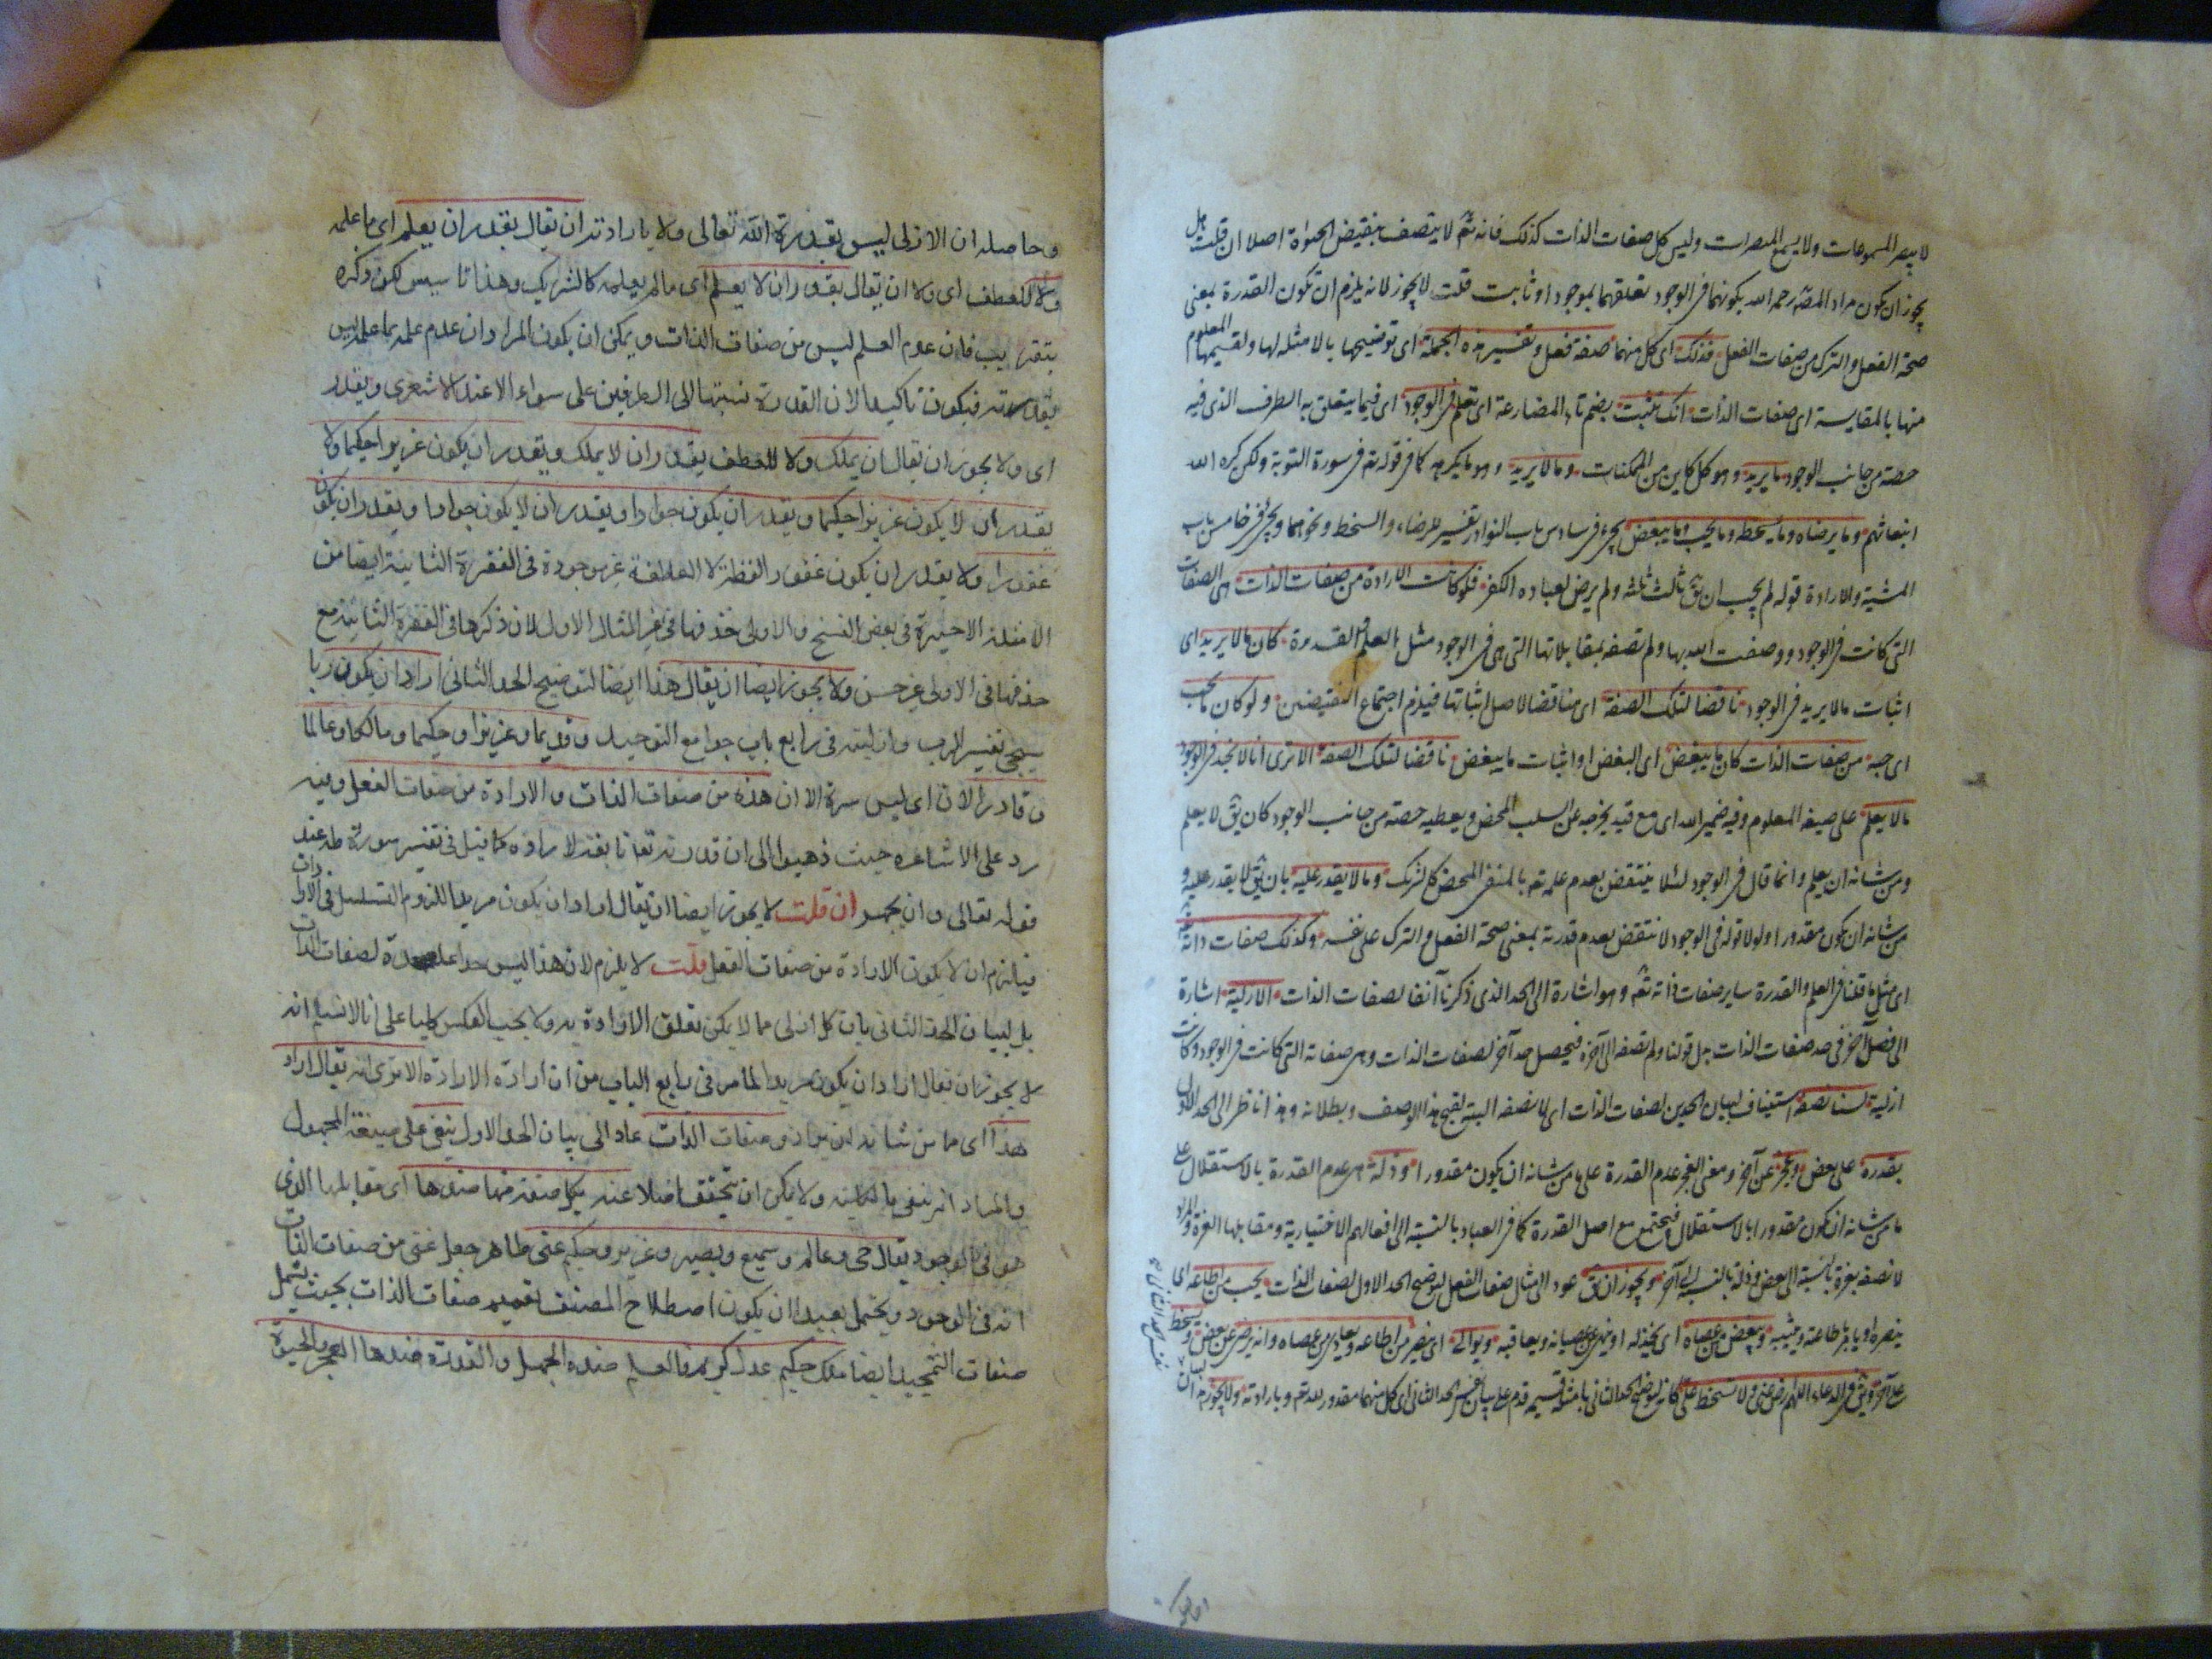 لا يبصر المسموعات ولا يسمع المبصرات وليس كل صفات الذات كذلك فانه تعم لا يتصف بنقيض الحيوة اصلا ان قلت هل
يجوز ان يكون مراد المصه رحمه الله بكونهما فى الوجود تعلقهما بموجود او ثابت قلت لا يجوز لانه يلزم ان تكون القدرة بمعنى
صحة الفعل والترك من صفات الفعل فذلك اى كل منهما صفة فعل وتفسير هذه الجملة اى توضيحها بالامثله لها ولقسيمها المعلوم
منها بالمقايسة اى صفات الذات انك تثبت بضم تاء المضارعة اى تعلم فى الوجود اى فيما يتعلق به الطرف الذى فيه
حصة من جانب الوجود ما يريد وهو كل كاين من الممكنات وما لا يريد وهو ما يكرهه كما فى قوله تم فى سورة التوبة ولكن كره الله
انبعاثهم وما يرضاه وما يسخطه وما يحب وما يبغض يجىء فى سادس باب النوادر تفسير للرضاء والسخط ونحوهما ويجىء فى خامس باب
المشية والارادة قوله لم يحب ان يق ثالث ثلثه ولم يرض لعباده الكفر فلو كانت الارادة من صفات الذات هى الصفات
التى كانت فى الوجود ووصفت الله بها ولم تصفه بمقابلاتها التى هى فى الوجود مثل العلم والقدرة كان ما لا يريد اى
اثبات ما لا يريد فى الوجود ناقضا لتلك الصفة اى مناقضا لاصل اثباتها فيلزم اجتماع النقيضين ولو كان ما يحب
اى حبه من صفات الذات كان ما يبغض اى البغض او اثبات ما يبغض ناقضا لتلك الصفة الا ترى انا لا نجد فى الوجود
ما لا يعلم على صيغة المعلوم وفيه ضمير الله اى مع قيد يخرجه عن السلب المحض ويعطيه حصته من جانب الوجود كان يق لا يعلم
ومن شانه ان يعلم وانما قال فى الوجود لئلا ينتقض بعدم علمه تم بالمنفى المحض كالشريك وما لا يقدر عليه بان يق لا يقدر عليه و
من شانه ان يكون مقدورا ولولا قوله فى الوجود لانتقض بعدم قدرته بمعنى صحة الفعل والترك على نفسه وكذلك صفات ذاته
اى مثل ما قلنا فى العلم والقدرة ساير صفات ذاته تعم وهو اشارة الى الحد الذى ذكرنا آنفا لصفات الذات الازلية اشارة
الى فصل آخر فى حد صفات الذات بدل قولنا ولم تصفه الى آخره فيحصل حد آخر لصفات الذات وهى صفاته التى كانت فى الوجود وكانت
ازلية لسنا نصفه استيناف لبيان الحدين لصفات الذات اى لا نصفه البتة لقبح هذا الوصف وبطلانه وهذا ناظر الى الحد الاول
بقدرة على بعض وعجز عن آخر ومعنى العجز عدم القدرة على ما من شانه ان يكون مقدورا وذلة هى عدم القدرة بالاستقلال على
ما من شانه ان يكون مقدورا بالاستقلال فيجتمع مع اصل القدرة كما فى العباد بالنسبة الى افعالهم الاختيارية ومقابلها العزة والمراد
لا نصفه بعزة بالنسبة الى بعض وذلة بالنسبة الى آخر ويجوز ان يق عود الى مثال صفات الفعل لتوضيح الحد الاول لصفات الذات يحب من اطاعه اى
ينصره او يامر بطاعته ويثيبه ويبغض من عصاه اى يخذله او ينهى عن عصيانه ويعاقبه ويوالى اى ينصر من اطاعه ويعادى من عصاه وانه يرضى عن بعض ويسخط
على آخر ويق فى الدعاء اللهم ارض عنى ولا تسخط على كانه لتوضيح الحد الثانى بامثلة قسيمه قدم على بيان نفس الحد الثانى اى كل منهما مقدور لله تم وبارادته ولا يجوز
وحاصله ان الازلى ليس بقدرة الله تعالى ولا بارادته ان يقال يقدر ان يعلم اى ما علمه
ولا للعطف اى ولا ان يقال يقدر ان لا يعلم اى ما لم يعلمه كالشريك وهذا تاسيس لكن ذكره
بتقريب فان عدم العلم ليس من صفات الذات ويمكن ان يكون المراد ان عدم علمه بما علمه ليس
بقدرته فيكون تاكيدا لان القدرة نسبتها الى الطرفين على سواء الا عند الاشعرى ويقدر
اى ولا يجوز ان يقال ان يملك ولا للعطف يقدر ان لا يملك ويقدر ان يكون عزيزا حكيما ولا
يقدر ان لا يكون عزيزا حكيما ويقدر ان يكون جوادا ويقدر ان لا يكون جوادا ويقدر ان يكون
غفورا ولا يقدر ان يكون غفورا لفظة لا العاطفة غير موجودة فى الفقرة الثانية ايضا من
الامثلة الاخيرة فى بعض النسخ والاولى حذفها فى غير المثال الاول لان ذكرها فى الفقرة الثانية مع
حذفها فى الاولى غير حسن ولا يجوز ايضا ان يقال هذا ايضا لتوضيح الحد الثانى اراد ان يكون ربا
سيجىء تفسير الرب وازليته فى رابع باب جوامع التوحيد وقديما وعزيزا وحكيما ومالكا وعالما
وقادرا لان اى ليس سره الا ان هذه من صفات الذات والارادة من صفات الفعل وفيه
رد على الاشاعره حيث ذهبوا الى ان قدرته تعالى نافذ لارادة كما قيل فى تفسير سورة طه عند
قوله تعالى وان تجهر ان قلت لا يجوز ايضا ان يقال اراد ان يكون مريدا للزوم التسلسل فى الارادات
فيلزم ان لا يكون الارادة من صفات الفعل قلت لا يلزم لان هذا ليس حدا على حدة لصفات الذات
بل لبيان الحد الثانى بان كل ازلى مما لا يمكن تعلق الارادة به ولا يجب العكس كليا على انا لا نسلم انه
لا يجوز ان يقال اراد ان يكون مريدا لما مر فى رابع الباب من ان ارادة الارادة الا ترى انه يقال اراد
هذا اى مما من شانه ان يراد وصفات الذات عاد الى بيان الحد الاول ينفى على صيغة المجهول
والمراد انه ينفى بالكلية ولا يمكن ان يتحقق اصلا عنه بكل صفة منها ضدها اى مقابلها الذى
هو فى الوجود يقال حى وعالم وسميع وبصير وعزيز وحكيم غنى ظاهر جعل غنى من صفات الذات
انه فى الوجود ويحتمل بعيدا ان يكون اصطلاح المصنف تعميم صفات الذات بحيث يشمل
صفات التمجيد ايضا ملك حكيم عدل كريم فالعلم ضده الجهل والقدرة ضدها العجز والحيوة